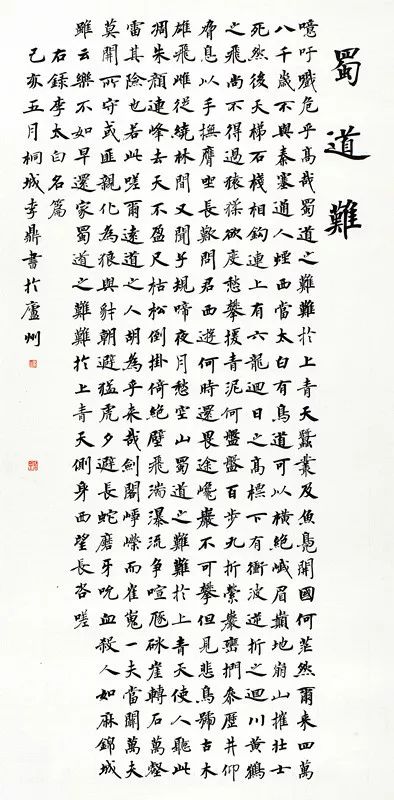 蜀道難
噫吁戲危乎高哉蜀道之難難於上青天蠶叢及魚鳧開國何茫然爾來四萬
八千歲不與秦塞通人煙西當太白有鳥道可以橫絕峨眉巔地崩山摧壯士
死然後天梯石棧相鈎連上有六龍迴日之高標下有衝波逆折之迴川黃鶴
之飛尚不得過猿猱欲度愁攀援青泥何盤盤百步九折縈巖巒捫參歷井仰
脅息以手撫膺坐長歎問君西遊何時還畏途巉巖不可攀但見悲鳥號古木
雄飛雌從繞林間又聞子規啼夜月愁空山蜀道之難難於上青天使人聽此
凋朱顏連峰去天不盈尺枯松倒掛倚絕壁飛湍瀑流爭喧豗砯崖轉石萬壑
雷其險也若此嗟爾遠道之人胡為乎來哉劍閣崢嶸而崔嵬一夫當關萬夫
莫開所守或匪親化為狼與豺朝避猛虎夕避長蛇磨牙吮血殺人如麻錦城
雖云樂不如早還家蜀道之難難於上青天側身西望長咨嗟
右錄李太白名篇
己亥五月桐城李鼎書於廬州